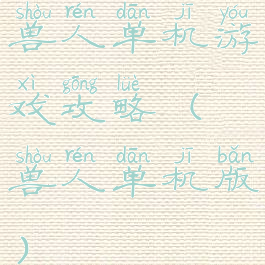 shòu rén dān jī yóu
兽人单机游
xì gōng lüè
戏攻略(
shòu rén dān jī bǎn
兽人单机版
)